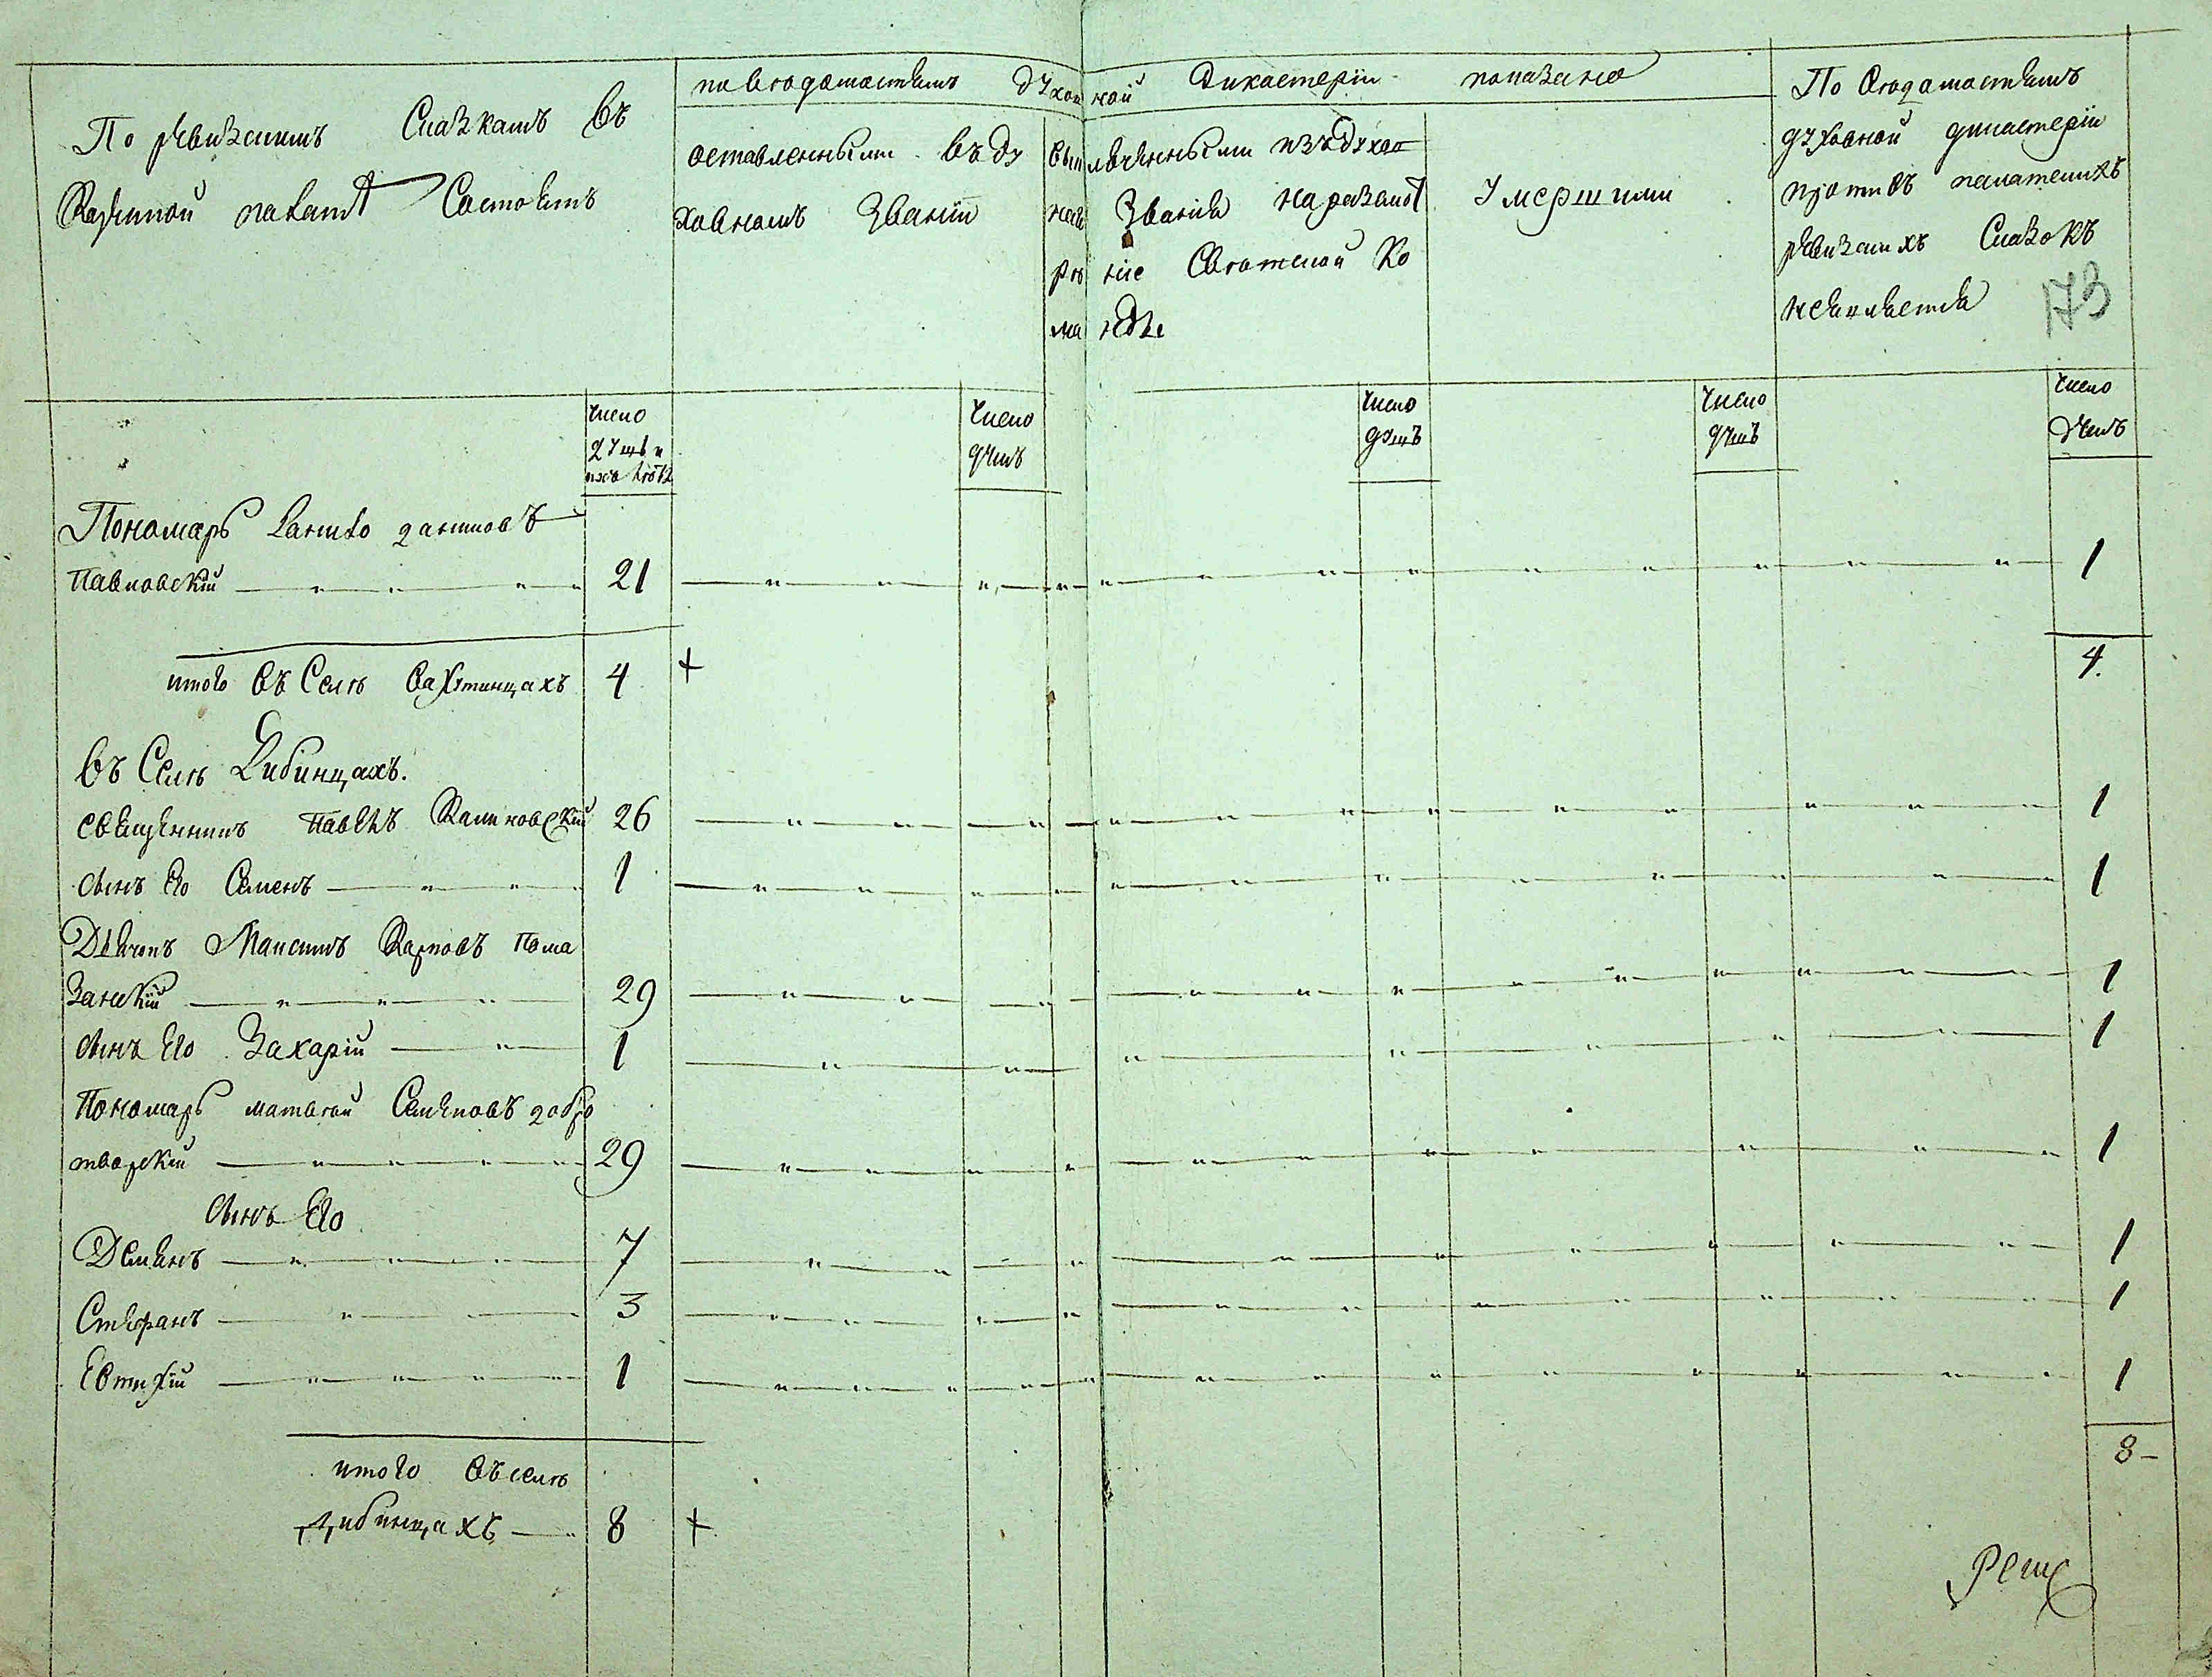 По ревизскимъ Сказкамъ въ
Казенной палатѣ Состоитъ
по вѣдомостямъ духовной Дикастеріи показано
оставленными въ ду
ховномъ Званіи
выключенными изъ духов
наго Званія на разсмот
рѣніе Свѣтской Ко
манды
Умершими
По вѣдомостямъ
духовной дикастеріи
противъ палатскихъ
ревизкихъ Сказокъ
неявляется
173
число
душъ и
ихъ лѣта
число
душъ
число
душъ
число
душъ
число
душъ
Пономарь
Павловскій 21 1
итого въ Селѣ 4 + 4.
въ Селѣ Цибинцахъ.
священникъ Павелъ Калиновскій 26 1
сынъ его Семенъ 1 1
Дьячокъ Максимъ Карповъ Пома
занскій 29 1
сынъ Его Захарій 1 1
Пономарь матвѣй Семеновъ добро
творскій 29 1
сынъ Его
Демянъ 7 1
Стефанъ 3 1
Евтихій 1 1
8
итого въ селѣ
Цибинцахъ 8 +